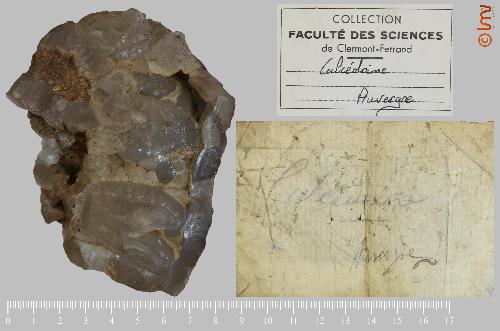 COLLECTION
FACULTÉ DES SCIENCES
de Clermont-Ferrand
Calcédoine
Auvergne
Calcédoine
Auvergne
0 1 2 3 4 5 6 7 8 9 10 11 12 13 14 15 16 17